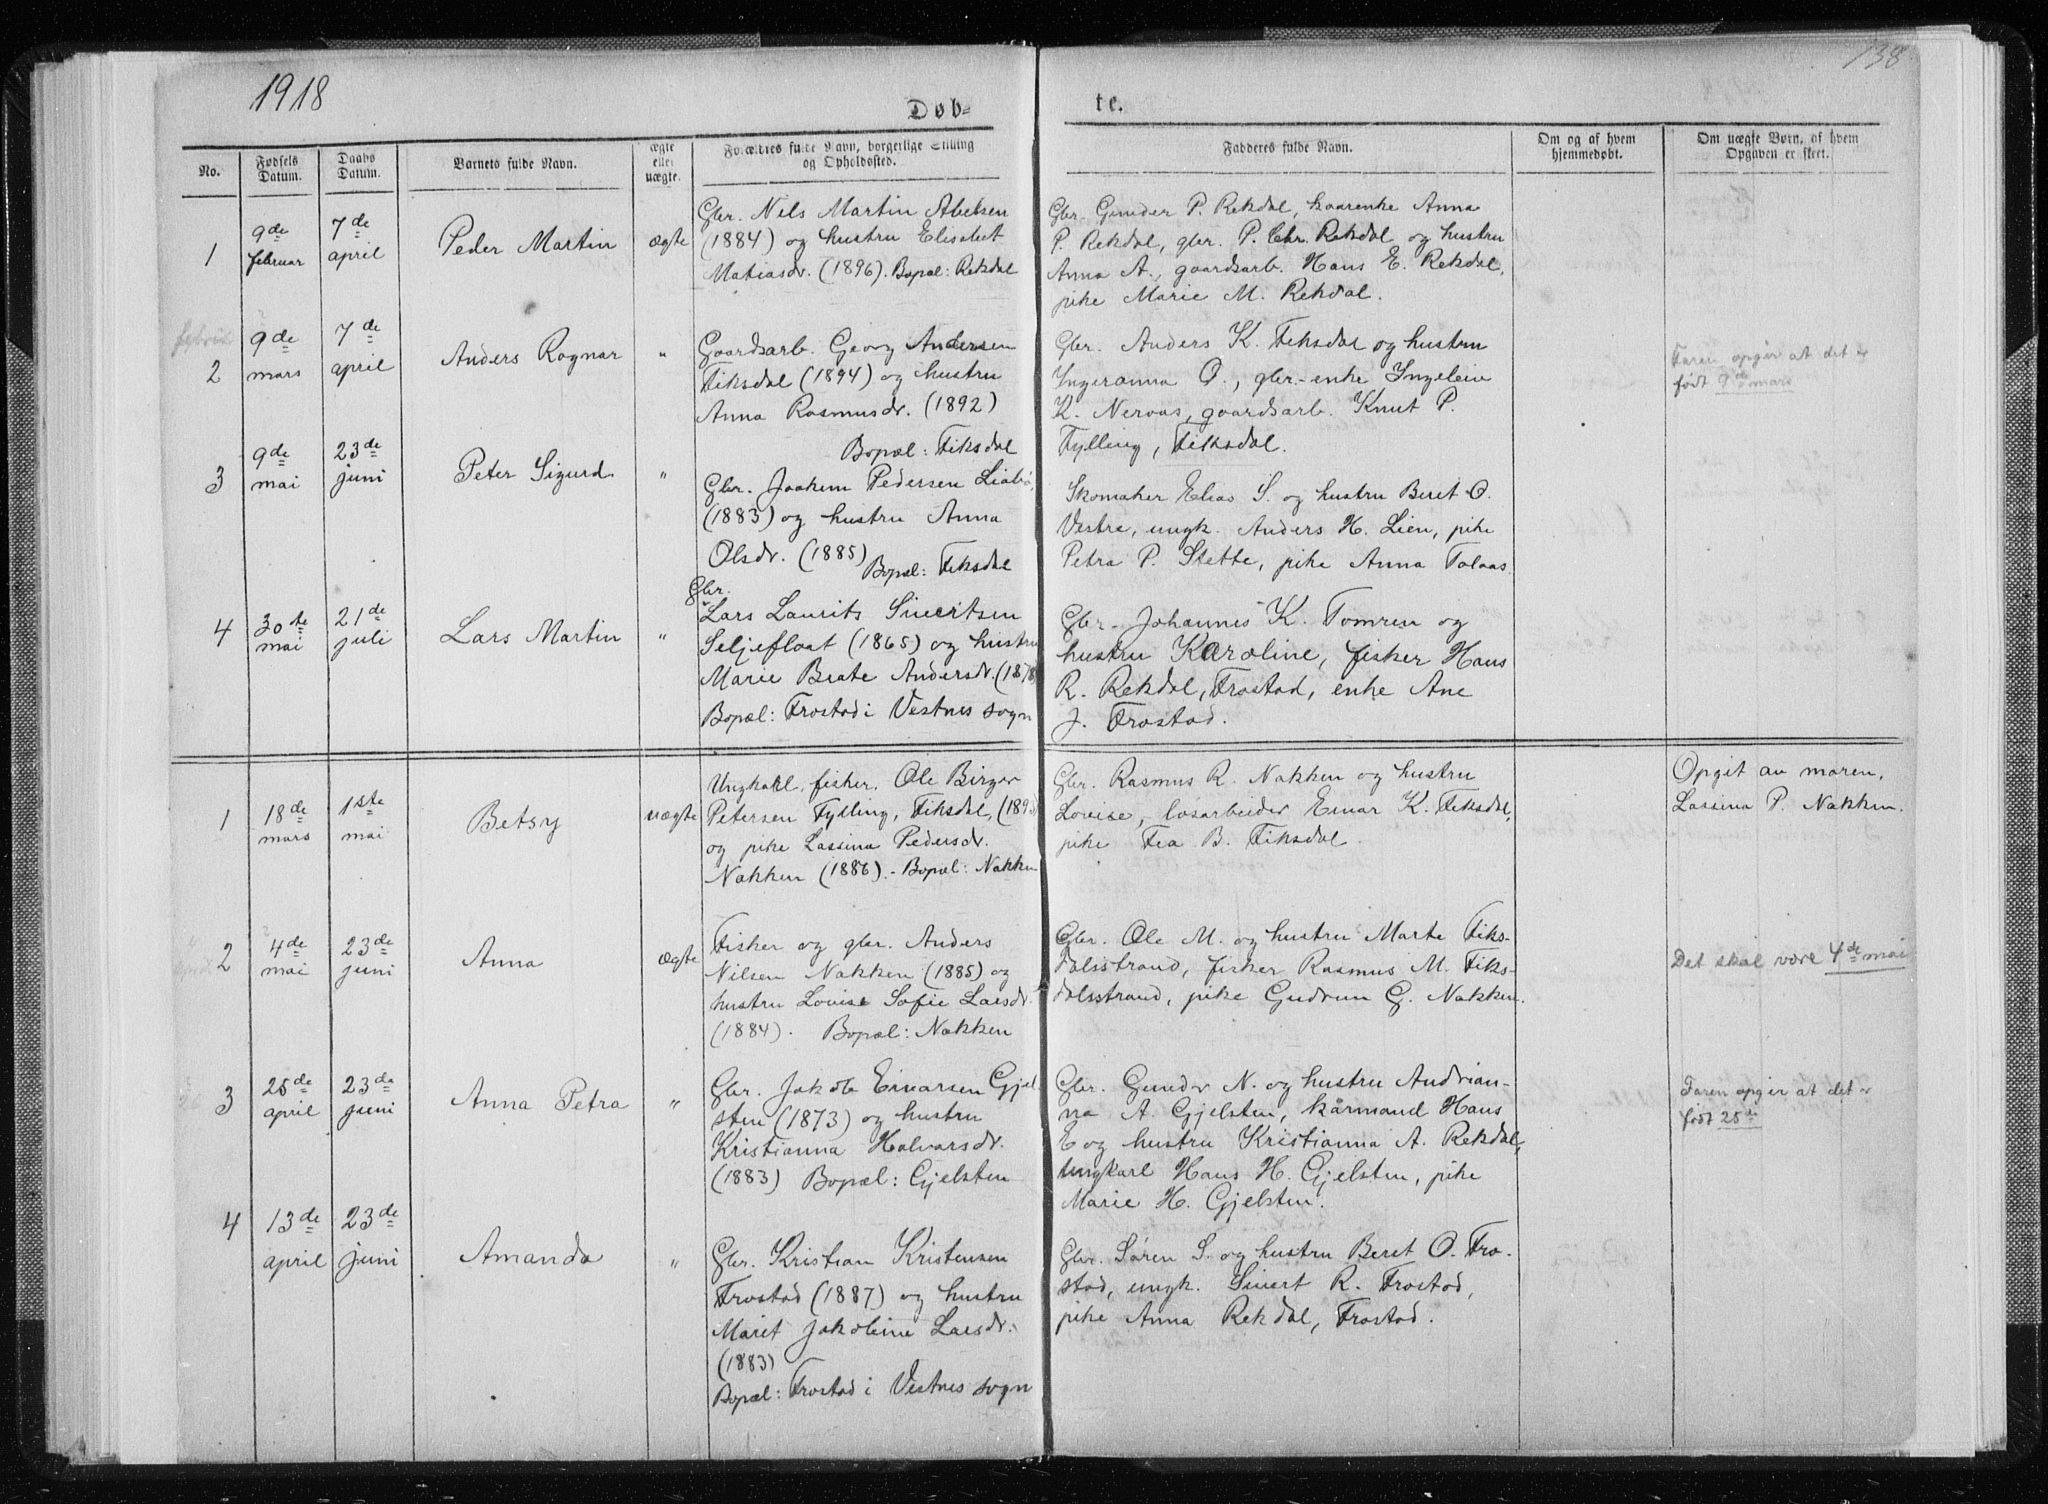 1918
138
Døb-
te.
No.
Fødsels Datum.
Daabs Datum.
Barnets fulde Navn.
ægte eller uægte.
Forældres fulde Navn, borgerlige Stilling og Opholdssted.
Fadderes fulde Navn.
Om og af hvem hjemmedøbt.
Om uægte Børn, af hvem Opgaven er skeet.
1
9de februar
7de april
Peder Martin
ægte
Gbr. Nils Martin Abelsen
(1884) og hustru Elisabet
Matiasdr. (1896). Bopæl: Rekdal
Gbr. Gunder P. Rekdal, kaarenke Anna
P. Rekdal, gbr. P. Chr. Rekdal og hustru
Anna A., gaardsarb. Hans E. Rekdal,
pike Marie M. Rekdal.
2
9de mars
7de april
Anders Ragnar
"
Gaardsarb. Georg Andersen
Fiksdal (1894) og hustru
Anna Rasmusdr. (1892)
Bopæl: Fiksdal
Gbr. Anders K. Fiksdal og hustru
Ingeranna O., gbr.-enke Ingelein
K. Nervas, gaardsarb. Knut P.
Fylling, Fiksdal.
Faren opgir at det er
født 9de mars
3
9de mai
23de juni
Peter Sigurd
"
Gbr. Joakim Pedersen Liabø,
(1883) og hustru Anna
Olsdr. (1885)
Bopæl: Fiksdal
Skomaker Elias S. og hustru Beret O.
Vestre, ungk. Anders H. Lien, pike
Petra P. Slette, pike Anna Talaas.
4
30te mai
21de juli
Lars Martin
"
Gbr.
Lars Laurits Sivertsen
Seljefloat (1865) og hustru
Marie Beate Andersdr. (1878)
Bopæl: Frostad i Vestnes sogn
Gbr. Johannes K. Tomren og
hustru Karoline, fisker Hans
R. Rekdal, Frostad, enke Ane
J. Frostad.
1
18de mars
1ste mai
Betsy
uægte
Ungkarl, fisker, Ole Birger
Petersen Fylling, Fiksdal,
og pike Lassina Pedersdr.
Nakken (1886). - Bopæl: Nakken
Gbr. Rasmus R. Nakken og hustru
Lovise, løsarbeider Einar K. Fiksdal,
pike Fia B. Fiksdal.
Opgit av moren,
Lassina P. Nakken.
2
4de mai
23de juni
Anna
ægte
Fisker og gbr. Anders
Nilsen Nakken (1885) og
hustru Lovise Sofie Larsdr.
(1884). Bopæl: Nakken
Gbr. Ole M. og hustru Marte Fiks-
dalsstrand, fisker Rasmus M. Fiks-
dalsstrand, pike Gudrun G. Nakken.
Det skal være 4de mai
3
25de april
23de juni
Anna Petra
"
Gbr. Jakob Einarsen Gjel-
sten (1873) og hustru
Kristianna Halvarsdr.
(1883) Bopæl: Gjelsten
Gbr. Gunder N. og hustru Andrian-
na A. Gjelsten, kårmand Hans
E og hustru Kristianna A. Rekdal,
ungkarl Hans H. Gjelsten, pike
Marie H. Gjelsten.
Faren opgir at det er
født 25de
4
13de april
23de juni
Amanda
"
Gbr. Kristian Kristensen
Frostad (1887) og hustru
Marit Jakobine Larsdr.
(1883)
Bopæl: Frostad i Vestnes sogn
Gbr. Søren S. og hustru Beret O. Fro-
stad, ungk. Sivert R. Frostad,
pike Anna Rekdal, Frostad.